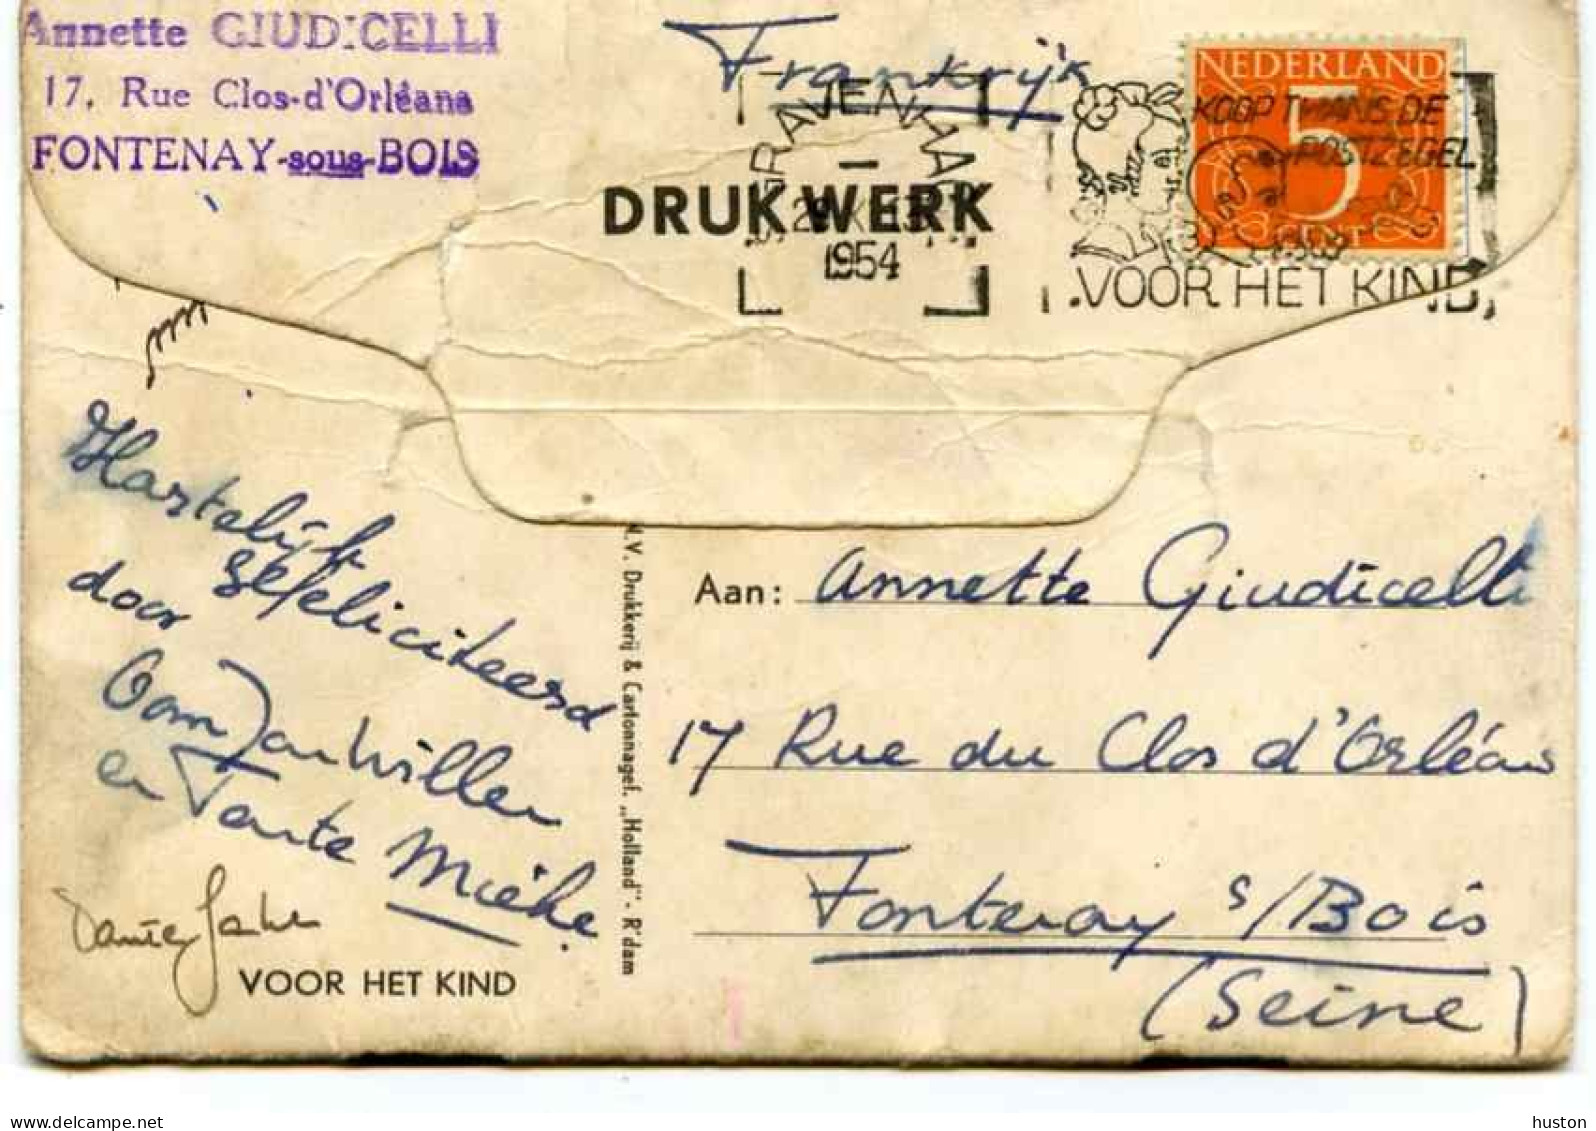 Annette GIUDICELLI
17, Rue Clos-d'Orléans
FONTENAY-sous-BOIS
Frankrijk
NEDERLAND
5
CENT
'S GRAVENHAGE
1954
KOOP THANS DE
POSTZEGEL
VOOR HET KIND
DRUKWERK
Hartelijk
gefeliciteerd
door
Oom Jan Willem
en Tante Miehe.
VOOR HET KIND
N.V. Drukkerij & Cartonnagef. „Holland" - R'dam
Aan: Annette Giudicelli
17 Rue du Clos d'Orléans
Fontenay s/Bois
(Seine)
huston